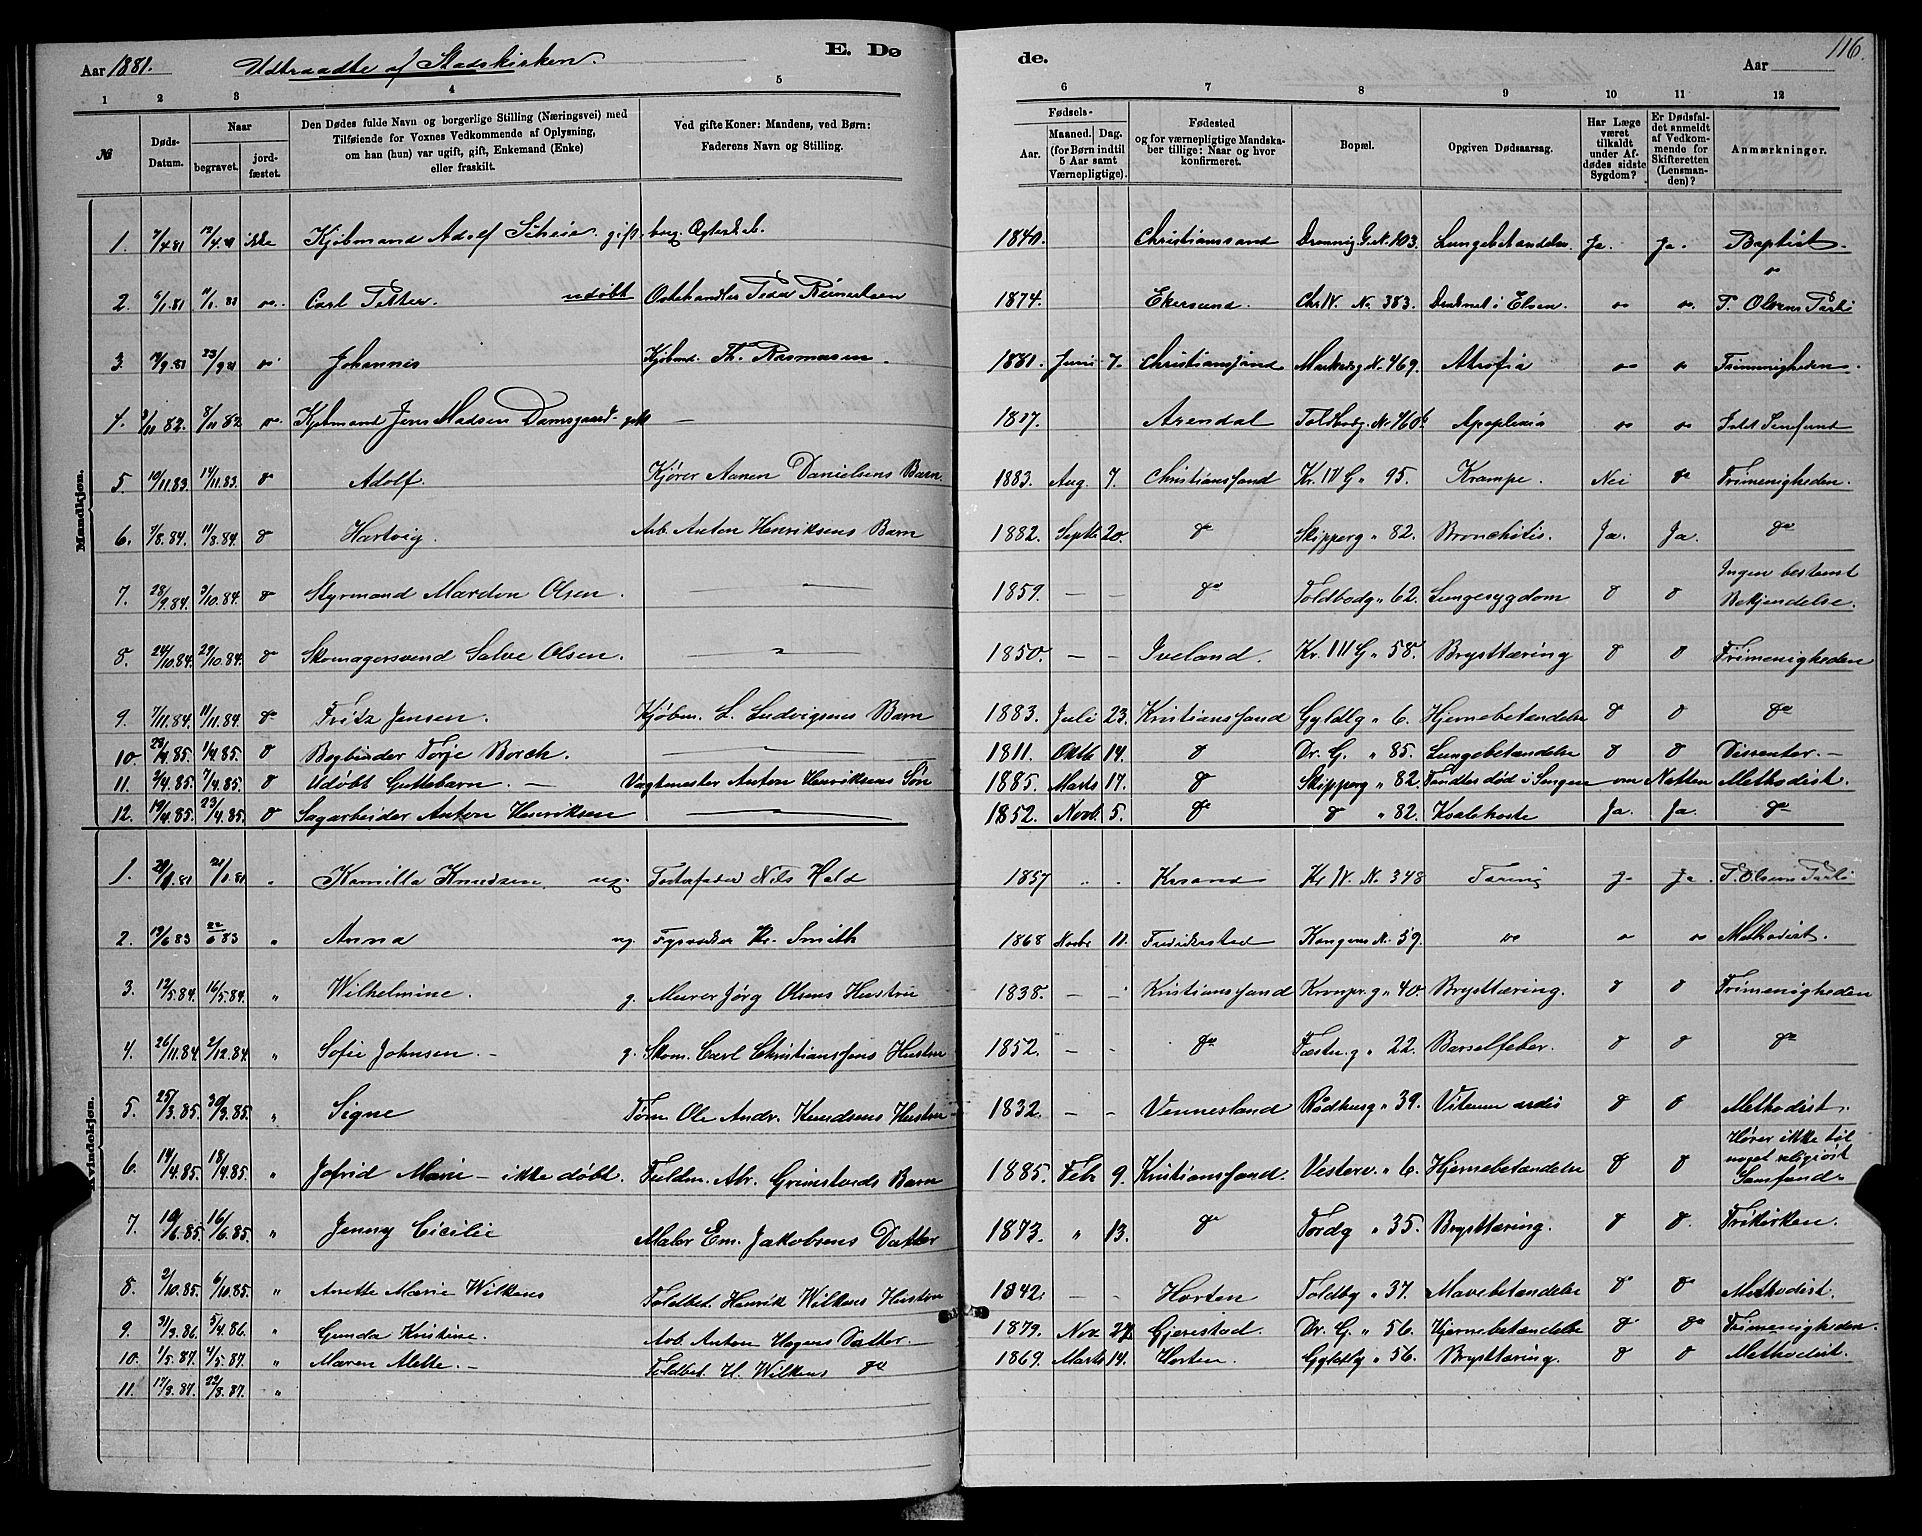 Aar 1881. Udtraadte af Statskirken. E. Dø
de. Aar 116.
1 2 3 4 5
6 7 8 9 10 11 12
№ Døds-Datum. Naar begravet. jordfæstet. Den Dødes fulde Navn og borgerlige Stilling (Næringsvei) med Tilføiende for Voxnes Vedkommende af Oplysning, om han (hun) var ugift, gift, Enkemand (Enke) eller fraskilt. Ved gifte Koner: Mandens, ved Børn: Faderens Navn og Stilling.
Fødsels- Aar. Maaned. Dag. (for Børn indtil 5 Aar samt Værnepligtige). Fødested og for værnepligtige Mandskaber tillige: Naar og hvor konfirmeret. Bopæl. Opgiven Dødsaarsag. Har Læge været tilkaldt under Afdødes sidste Sygdom? Er Dødsfaldet anmeldt af Vedkommende for Skifteretten (Lensmanden)? Anmærkninger.
Mandkjøn.
1. 7/4.81 12/4.81 ikke Kjøbmand Adolf Scheie gift 1840. Christianssand Dronnig.G. N. 103. Lungebetændelse Ja. Ja. Baptist.
2. 6/1.81 11/1.81 " Carl Petter. udøbt 1874. Ekersund. Chr.IV. N. 383. Druknet i Elven " " P. Olsens Parti
3. 23/9.81 " Johannes Kjøbmd. Th. Rasmussen. 1881. Juni 7. Christianssand Markedsg. N. 469. Atrofia " " Frimenigheden.
4. 3/11 82. 8/11 82 " Kjøbmand Jens Madsen Damsgaard gift — 1827. Arendal Toldbodg. N. 460b Apoplexia " "
5. 10/11.83 14/11.83. do Adolf. Kjører Aanen Danielsens Barn. 1883. Aug. 7. Christianssand Kr. IV G " 95. Krampe. Nei do Frimenigheden.
6. 7/8.84. 11/8.84. do Hartvig. Arb. Anton Henriksens Barn 1882. Septb 20. do Skipperg " 82. Bronchitis. Ja. Ja. do
7. 28/9.84. 3/10.84. do Styrmand Mardon Olsen. — 1859. — — do Toldbodg " 62. Lungesygdom do do Ingen bestemt Bekjendelse.
8. 24/10.84. 29/10.84. do Skomagersvend Salve Olsen. — 1850. — — Iveland. Kr. III G " 58. Brysttæring do do Frimenigheden
9. 7/11.84. 11/11.84. do Fritz Jensen. Kjøbm. L. Ludvigsens Barn 1883. Juli 23. Kristianssand Gyldlg " 6. Hjernebetændelse do do do
10. 1/4.85. do Bogbinder Torje Borch. — 1811. Oktb 14. do Dr. G. " 85. Lungebetændelse do do Dissenter. —
11. 2/4.85. 7/4.85. do Udøbt Guttebarn. — Vagtmester Anton Henriksens Søn 1885. Marts 17. do Skipperg " 82. Fandtes død i Sengen om Natten Methodist.
12. 19/4.85. 23/4.85. do Sagarbeider Anton Henriksen — 1852. Novb. 5. do do " 82. Koalehoste Ja. Ja. do
Kvindekjøn.
1. 21/1.81 " Kamilla Knudsen ug. Fosterfader Nils Hald 1857 " " Krsand Kr IV. N. 348 Tæring Ja Ja P. Olsens Parti
2. 19/6 83 22/6 83 " Anna ug. Smith 1868 Novbr 11. Fredriksstad Kongens N. 59. " " " Methodist.
3. 12/5.84. 16/5.84. " Wilhelmine. g. Murer Jørg Olsens Hustru 1838. — — Kristianssand Kronpr.g " 40. Brysttæring. do do Frimenigheden
4. 26/11.84. 2/12.84. " Sofie Johnsen. — g. Skom. Carl Christianssens Hustru 1852. — — do Fæstn.g " 22. Barselfeber. do do do
5. 25/3.85. 30/3.85. " Signe Tøm. Ole Andr. Knudsens Hustru 1832. — — Vennesland Rådhusg " 39. Vitium cordis do do Methodist.
6. 14/4.85. 18/4.85. " Jofrid Marie — ikke døbt. Fuldm. Abr. Grimstveds Barn 1885. Febr 9. Kristianssand. Vesterv. " 6. Hjernebetændelse do do Hører ikke til noget religiøst Samfund.
7. 10/6.85. 16/6.85. " Jenny Cicilie Maler Em. Jakobsens Datter 1873. " 13. do Tordg " 35. Brysttæring. do do. Frikirken.
8. 2/10.85. 6/10.85. " Anette Marie Wilkens Toldbet. Henrik Wilkens Hustru 1842. — — Horten Toldbg " 37. Mavebetændelse do do Methodist.
9. 31/3.86. 5/4.86. " Gunda Kristine. Arb. Anton Hagens Datter. 1879. Nov. 27. Gjerestad. Dr. G. " 56. Hjernebetændelse do do Frimenigheden.
10. 1/5.87. 4/5.87. " Maren Alette. — Toldbet. H. Wilkens do 1869. Marts 14. Horten. Gyldlg " 56. Brysttæring. do do Methodist.
11. 17/8.87. 22/8.87. "